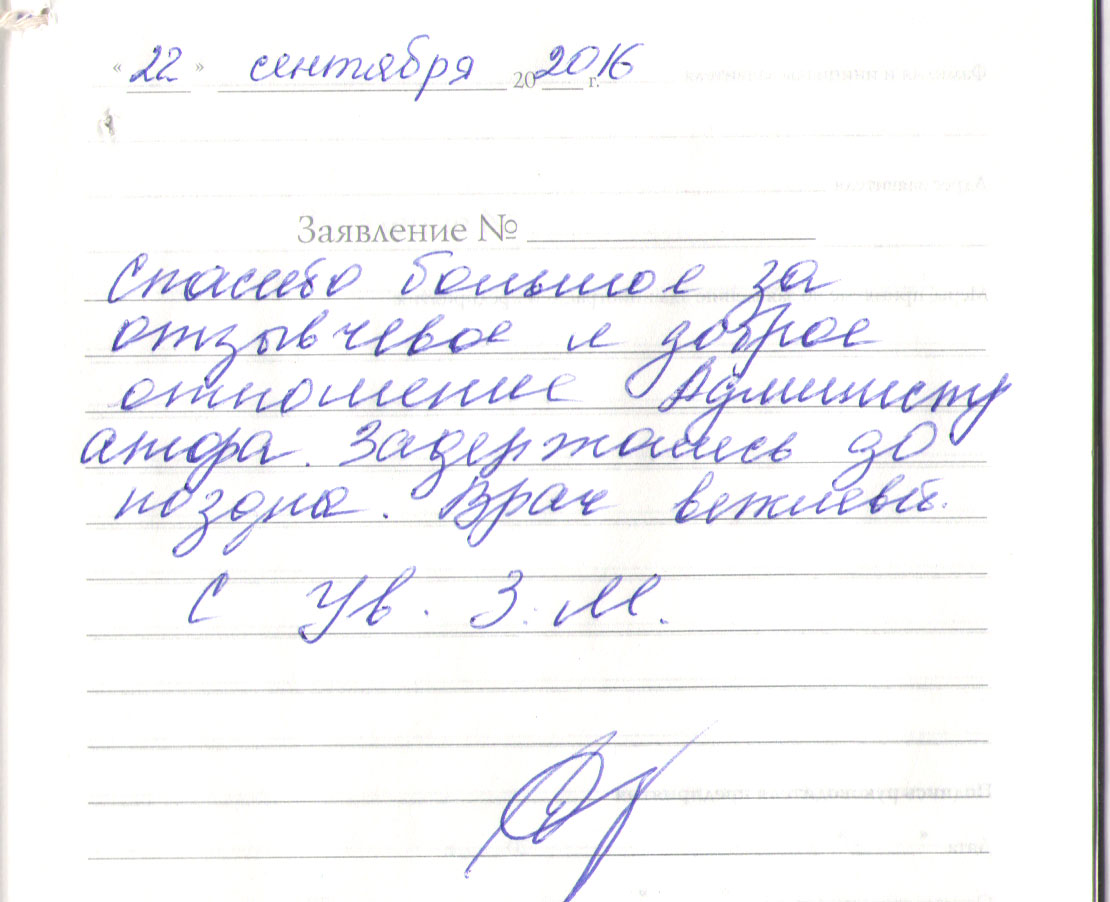 «22» сентября 202016 г.
Заявление №
Спасибо большое за
отзывчевое и доброе
отношение Администр
атора. Задержались до
поздна. Врач вежлевый.
С Ув. З. М.